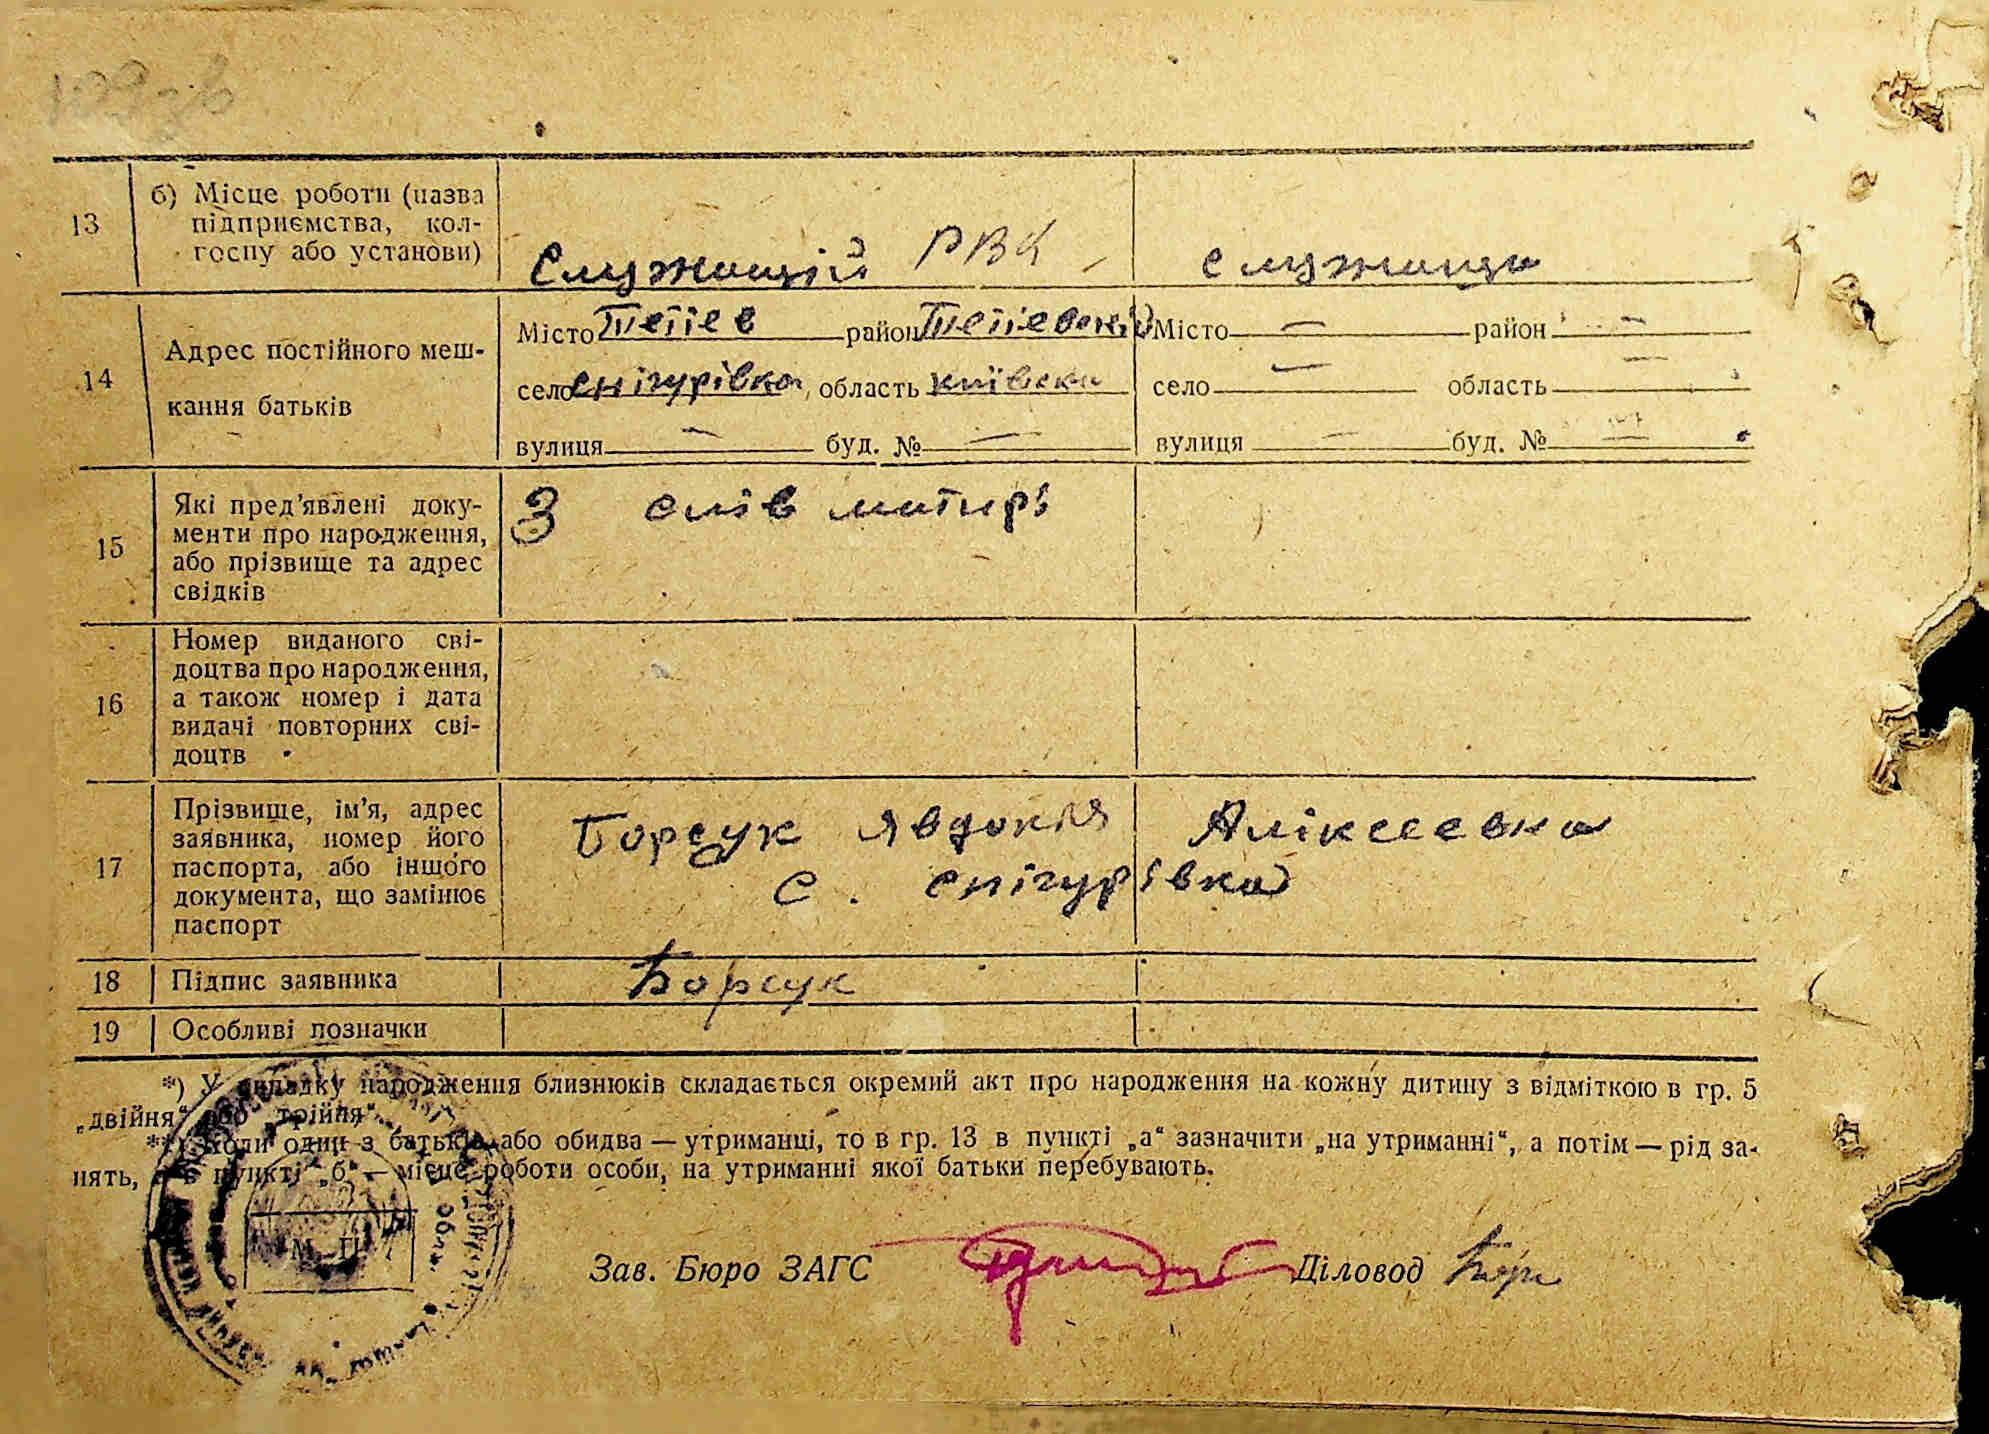 13
б) Місце роботи (назва
підприємства, кол-
госпу або установи)
Служищій РВК
служища
14
Адрес постійного меш-
кання батьків
Місто Тетієв район Тетієвский
село снігурівка, область київска
вулиця — буд. № —
Місто — район —
село — область —
вулиця — буд. № —
15
Які пред'явлені доку-
менти про народження,
або прізвище та адрес
свідків
З слів матирі
16
Номер виданого сві-
доцтва про народження,
а також номер і дата
видачі повторних сві-
доцтв
17
Прізвище, ім'я, адрес
заявника, номер його
паспорта, або іншого
документа, що замінює
паспорт
Борсук Явдокія Аліксеевна
с. снігурівка
18
Підпис заявника
Борсук
19
Особливі позначки
*) У випадку народження близнюків складається окремий акт про народження на кожну дитину з відміткою в гр. 5
„двійня“ або „трійня“.
**) Коли один з батьків або обидва — утриманці, то в гр. 13 в пункті „а“ зазначити „на утриманні“, а потім — рід за-
нять, а в пункті „б“ — місце роботи особи, на утриманні якої батьки перебувають.
М. П.
Зав. Бюро ЗАГС
Діловод